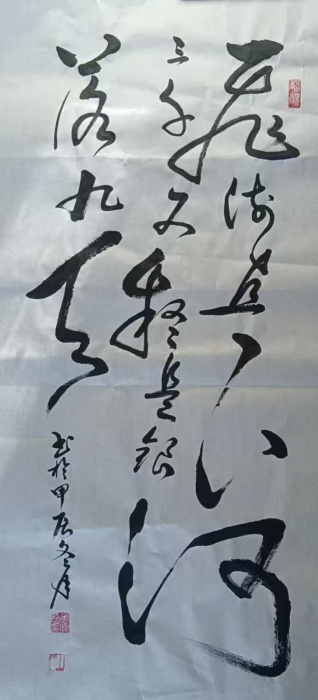 飞流直下
三千尺疑是银河
落九天
书于甲辰冬月